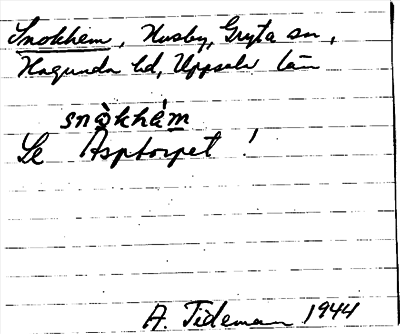 Snokhem, Husby, Gryta sn,
Hagunda hd, Uppsala län
snòkhém
Se Asptorpet !
A. Tideman 1944